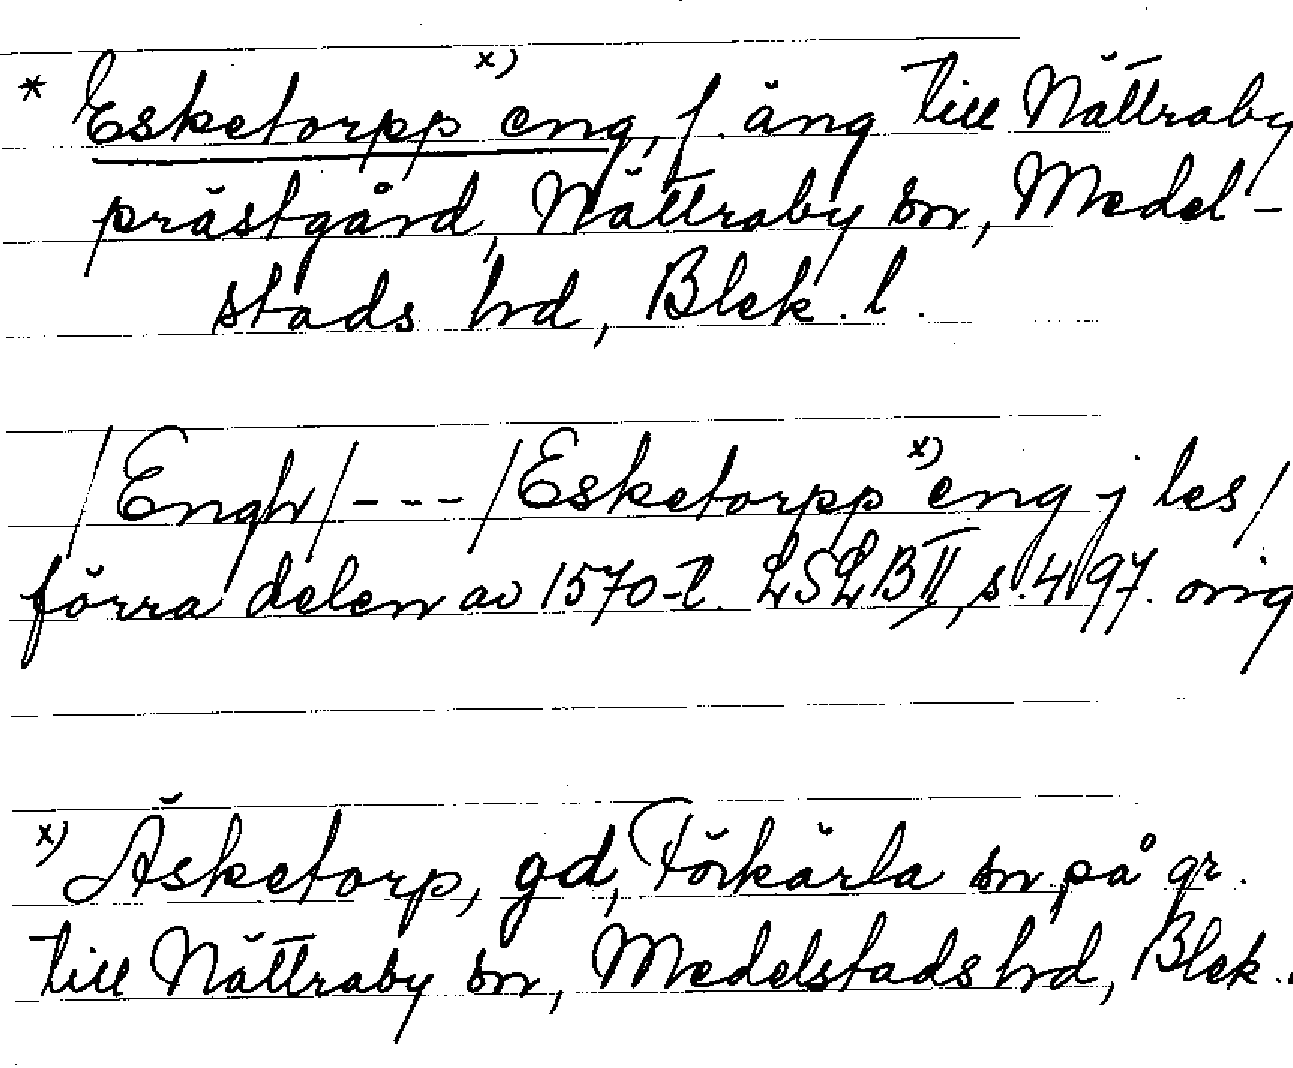 * Esketorpp x) eng, f. äng till Nättraby
prästgård, Nättraby sn, Medel-
stads hd, Blek. l.
/Engh/---/Esketorpp x) eng j les/
förra delen av 1570-t. LSLB II, s. 497. orig
x) Äsketorp, gd, Förkärla sn, på gr.
till Nättraby sn, Medelstads hd, Blek. l.